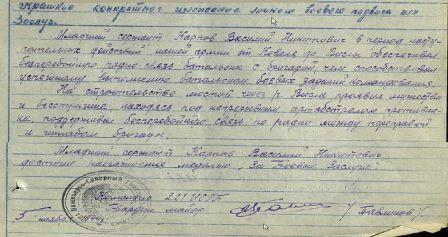 Краткое конкретное изложение личного боевого подвига или
заслуг.
Младший сержант Карпов Василий Никитович в период насту-
пательных действий нашей армии от Ковеля до Вислы обеспечивал
бесперебойную радио связь батальона с бригадой, чем способствовал
успешному выполнению батальоном боевых заданий командования.
На строительстве мостов через р. Висла проявил мужество
и бесстрашие, находясь под непрерывным артобстрелом противни-
ка, поддерживал бесперебойную связь по радио между переправой
и штабом бригады.
Младший сержант Карпов Василий Никитович
достоин награждения медалью „За Боевые Заслуги".
Командир 221 ИСБ
Гвардии майор /Павлинов/
5 ноября 1944г.